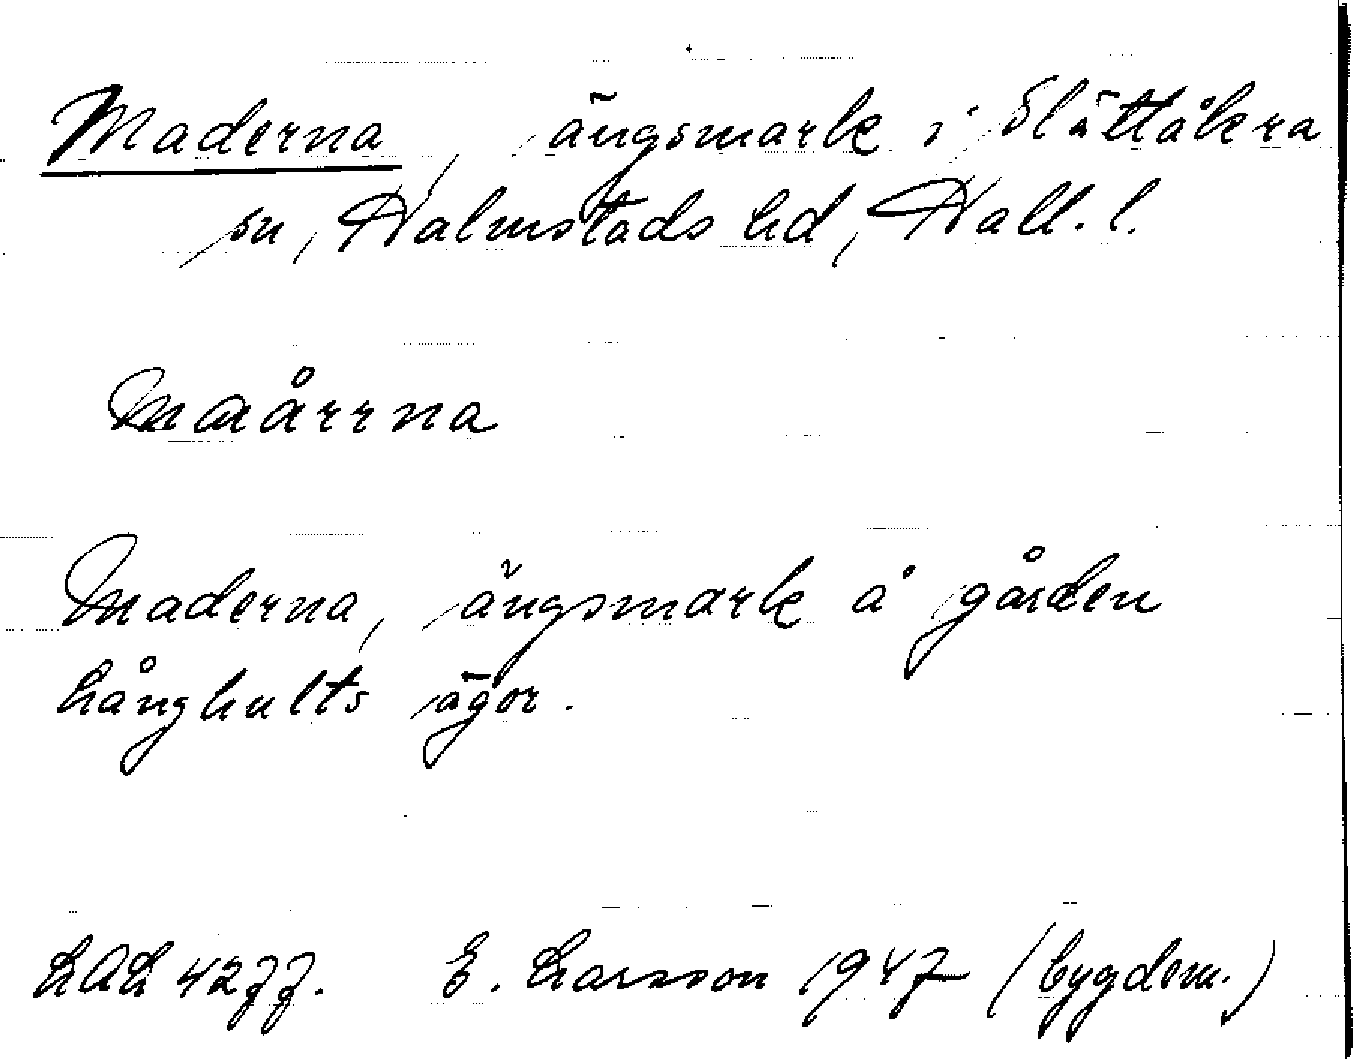 Maderna, ängsmark i Slättåkra
sn, Halmstads hd, Hall. l.
Maårrna
Maderna, ängsmark å gården
Långhults ägor.
LAL 4277. E. Larsson 1947 (bygdem.)